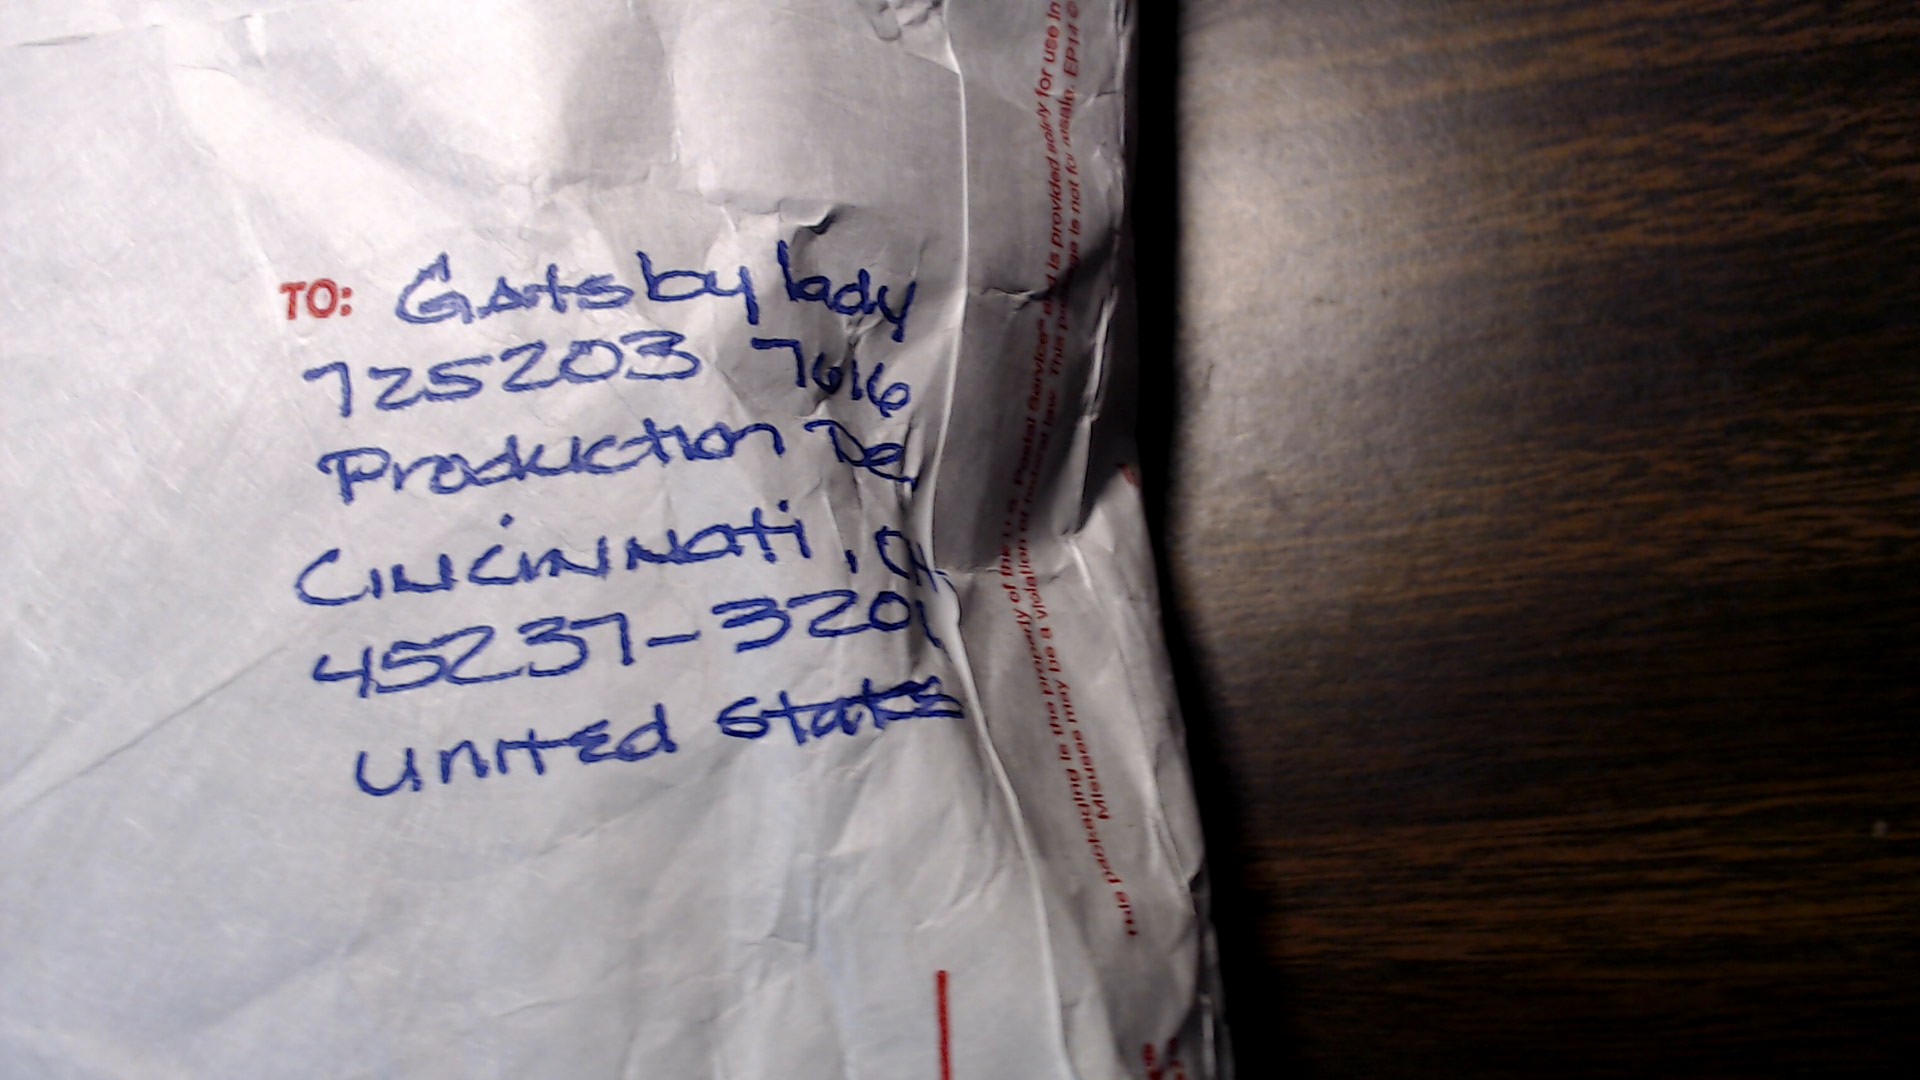 TO: Gatsby lady
725203 7616
Production De
Cincinnati, O
45237-320
United States
This packaging is the property of the U.S. Postal Service® and is provided solely for use in
Misuse may be a violation of federal law. This package is not for resale. EP14 ©